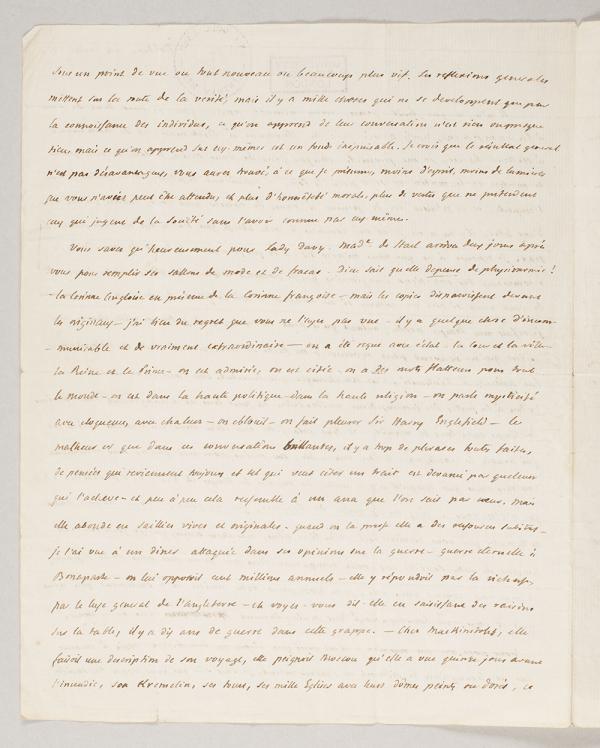 sous un point de vue ou tout nouveau ou beaucoup plus vif. Les reflexions generales
mettent sur la route de la verité, mais il y a mille choses qui ne se developpent que par
la connoissance des individus, ce qu'on apprend de leur conversation n'est rien ou presque
rien, mais ce qu'on apprend sur eux-mêmes est un fonds inepuisable. Je crois que le résultat general
n'est pas désavantageux, vous aurez trouvé, à ce que je présume, moins d'esprit, moins de lumieres
que vous n'aviez peut être attendu, et plus d'honnêteté morale, plus de vertus que ne prétendent
ceux qui jugent de la société sans l'avoir connue par eux mêmes.
Vous savez qu'heureusement pour Lady Davy Made de Stael arriva deux jours après
vous pour remplir ses sallons de mode et de fracas. Dieu sait quelle depense de physionomie!
- la Corinne Angloise en présence de la Corinne françoise - mais les copies disparoissent devant
les originaux - j'ai bien du regret que vous ne l'ayez pas vue - il y a quelque chose d'incom-
-municable et de vraiment extraordinaire — on a été reçue avec éclat - la cour et la ville -
la Reine et le Prince - on est admirée, on est citée - on a des mots flatteurs pour tout
le monde - on est dans la haute politique - dans la haute religion - on parle mysticité
avec eloquence, avec chaleur - on eblouit - on fait pleurer Sir Harry Englefield - le
malheur est que dans ces conversations brillantes, il y a trop de phrases toutes faites,
de pensées qui reviennent toujours et tel qui veut citer un trait est devancé par quelqu'un
qui l'acheve - et peu à peu cela ressemble à un ana que l'on sait par cœur, mais
elle abonde en saillies vives et originales. quand on la presse elle a des ressources subites -
je l'ai vue à un diner attaquée dans ses opinions sur la guerre - guerre eternelle à
Bonaparte - on lui opposoit cent millions annuels - elle y répondoit par la richesse,
par le luxe general de l'angleterre - eh voyez-vous dit-elle en saisissant des raisins
sur la table, il y a dix ans de guerre dans cette grappe. — Chez Mackintosh, elle
faisoit une description de son voyage, elle peignoit Moscou qu'elle a vue quinze jours avant
l'incendie, son Kremelin, ses tours, ses mille Eglises avec leurs dômes peints ou dorés, ce